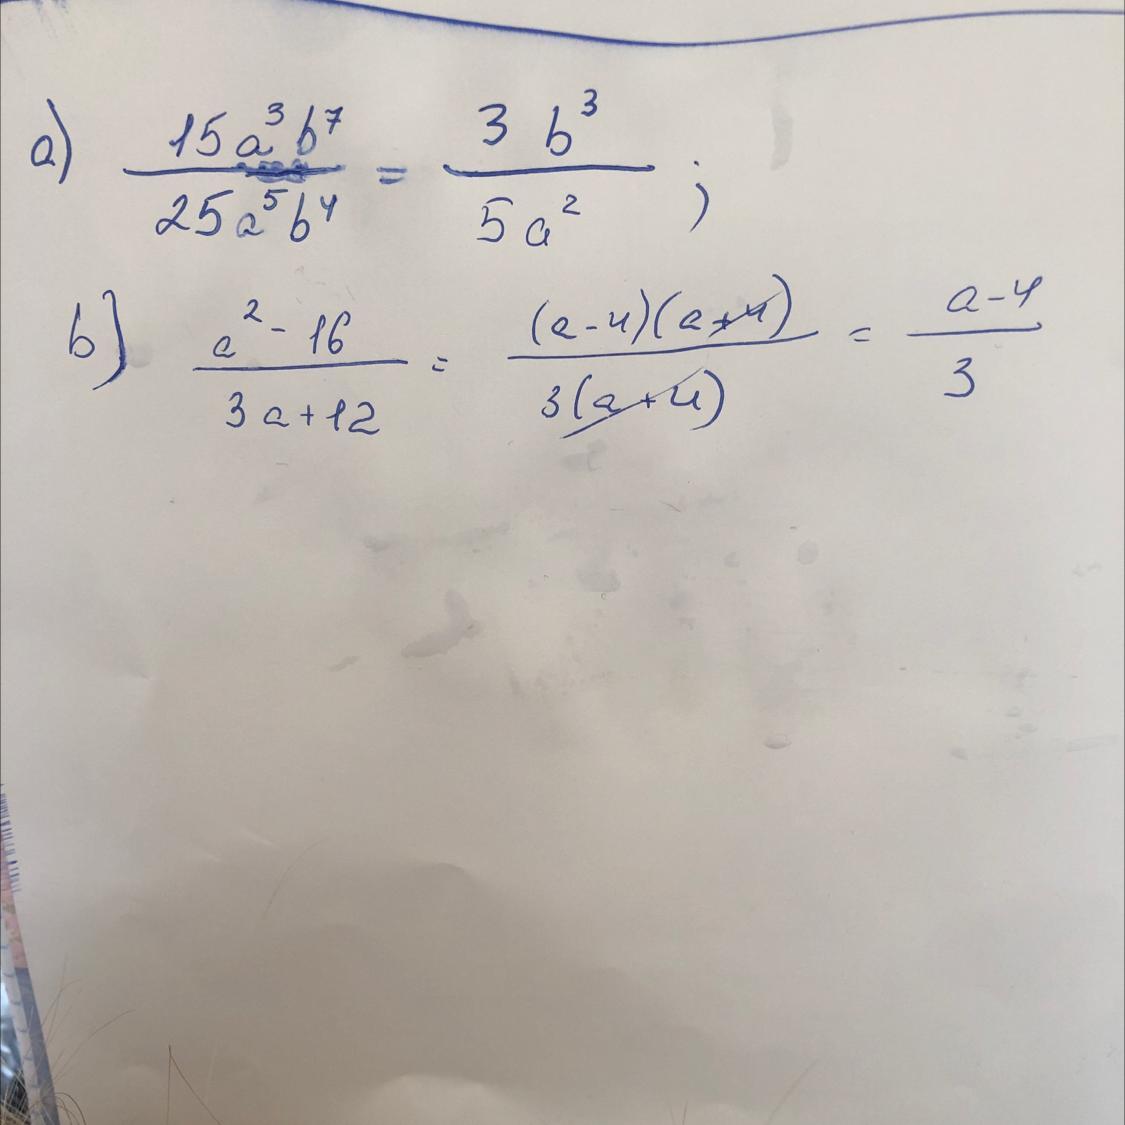 a) 15a³b⁷ / 25a⁵b⁴ = 3b³ / 5a² ;
b) a² - 16 / 3a + 12 = (a - 4)(a + 4) / 3(a + 4) = a - 4 / 3